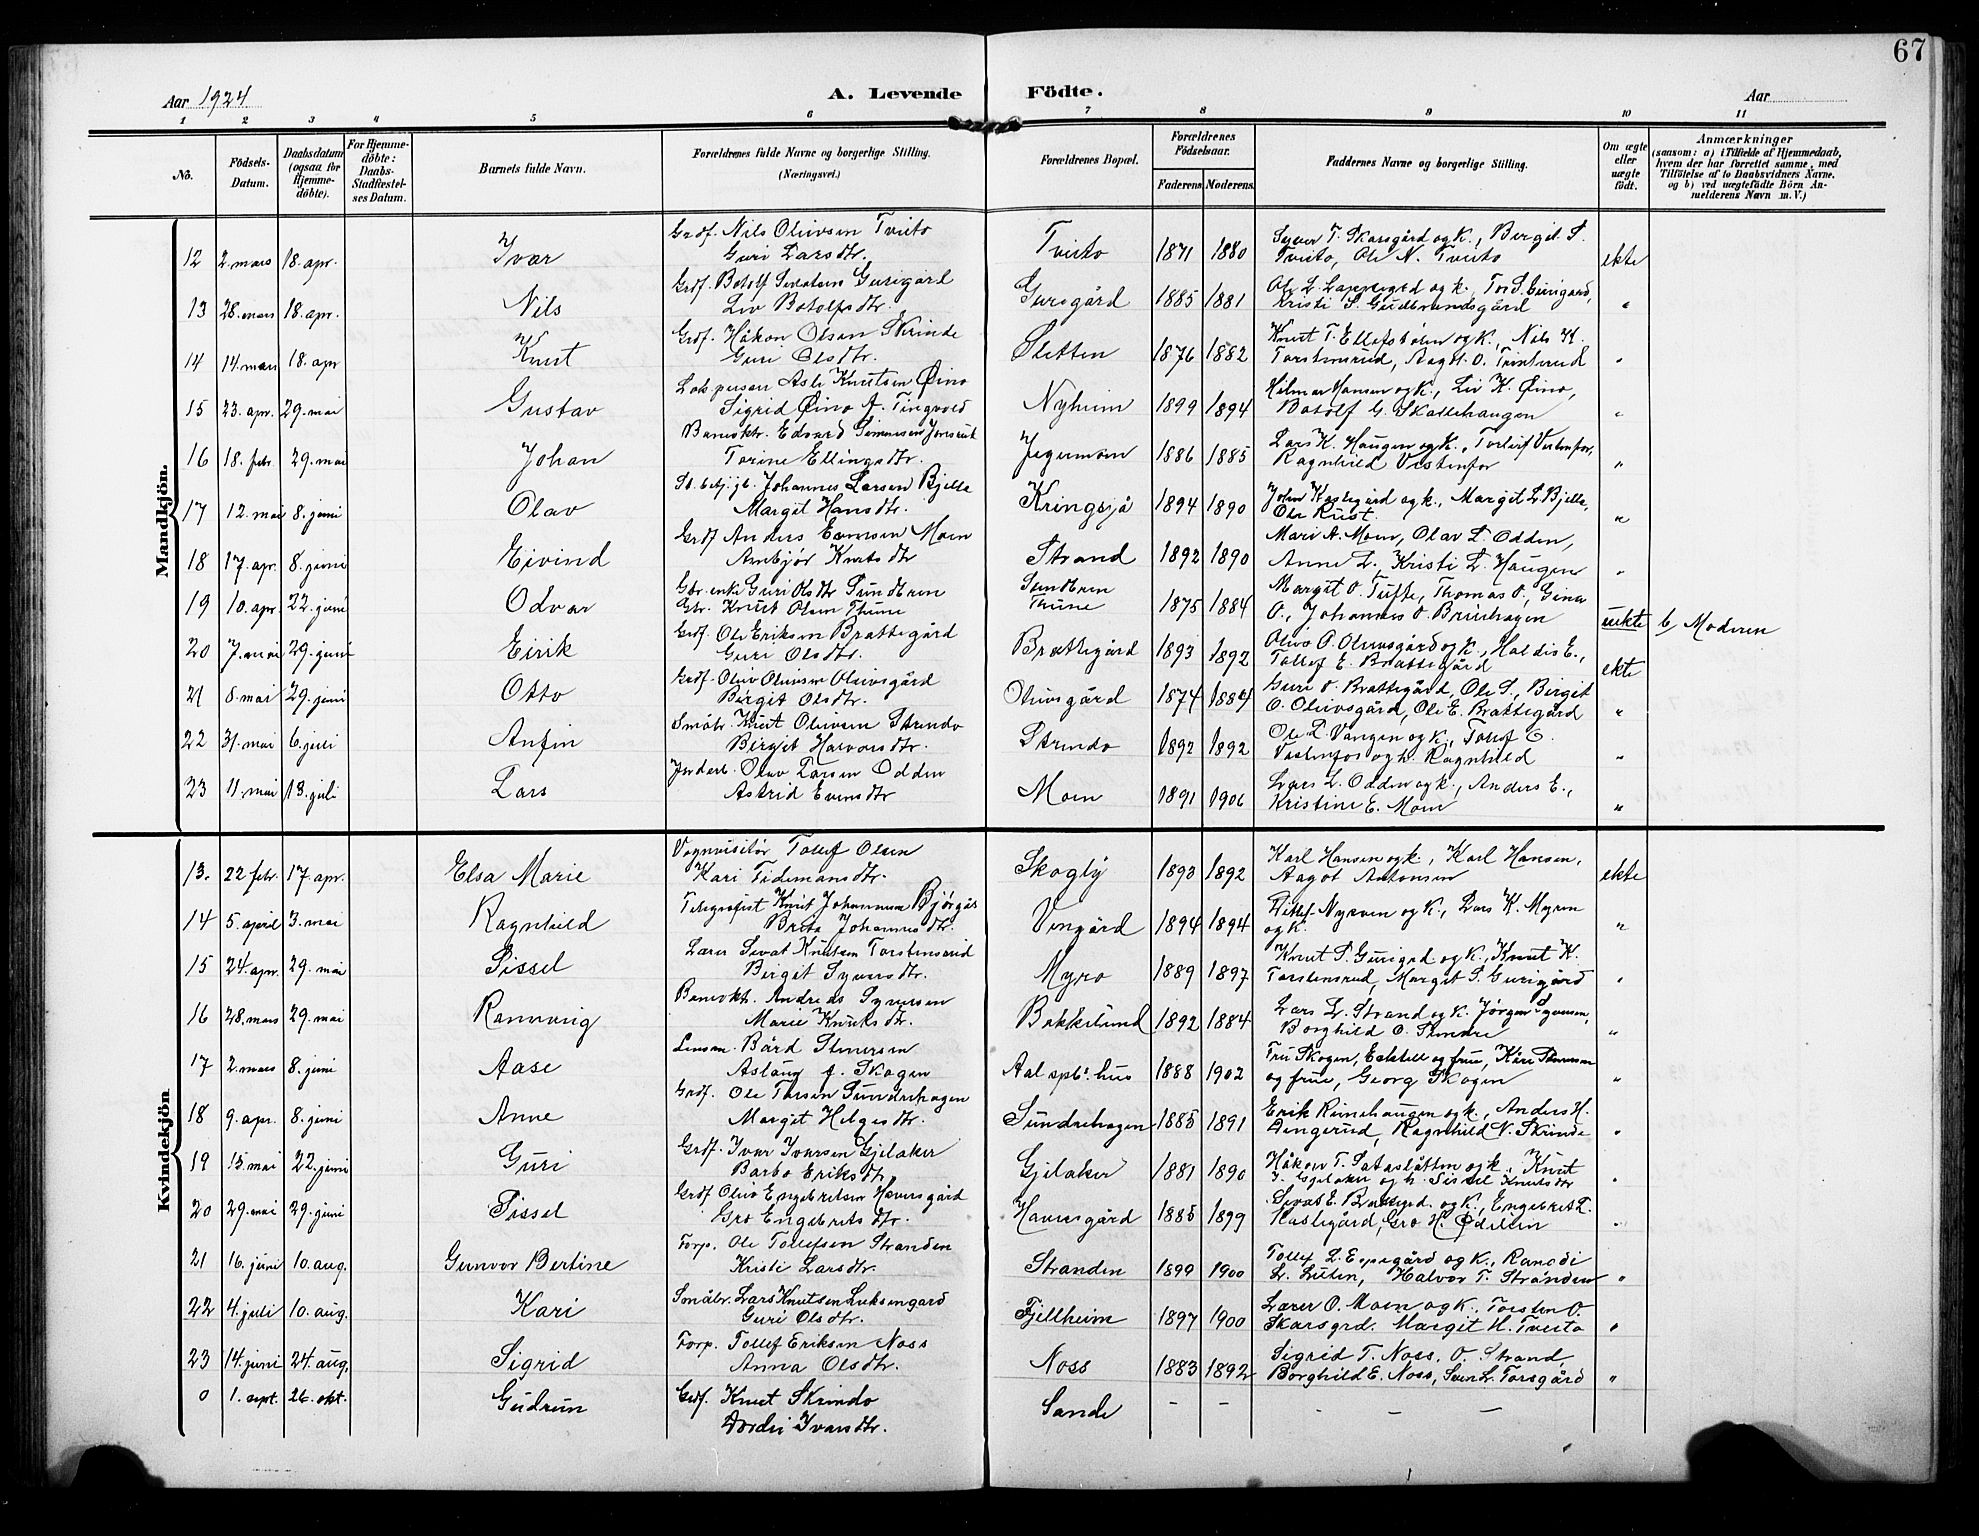 67
Aar 1924
A. Levende Födte.
Aar
1 2 3 4 5 6 7 8 9 10 11
No.
Födsels-Datum.
Daabsdatum (ogsaa for Hjemme-döbte).
For Hjemme-döbte: Daabs-Stadfæstel-ses Datum.
Barnets fulde Navn.
Forældrenes fulde Navne og borgerlige Stilling.
(Næringsvei.)
Forældrenes Bopæl.
Forældrenes Födselsaar.
Faderens. Moderens.
Faddernes Navne og borgerlige Stilling.
Om ægte eller uægte födt.
Anmærkninger
(saasom: a) i Tilfælde af Hjemmedaab, hvem der har forrettet samme, med Tilföielse af to Daabsvidners Navne. og b) ved uægtefödte Börn An-melderens Navn m. V.)
Mandkjön.
12 2. mars 18. apr. Ivar Grdf. Nils Olivsen Tveito
Guri Larsdtr. Tveito 1871 1880 Syver T. Skarsgård og k., Birgit S.
Tveito, Ole N. Tveito ekte
13 28. mars 18. apr. Nils Grdf. Botolf Gurigård
Liv Botolfsdtr. Gurigård 1885 1881 Ole L. og k., Tor S. Gurigard,
Kristi S. Gudbrandsgård "
14 14. mars 18. apr Knut Grdf. Håkon Olsen Skrinde
Guri Olsdtr. Sletten 1876 1882 Knut T. og k., Nils H.
Torstensrud, Aagot O. "
15 23. apr. 29. mai Gustav Asle Knutsen Øino
Sigrid Øino f. Tingvold Nyheim 1899 1894 Hilmar Hansen og k., Liv K. Øino,
Botolf G. Skattehaugen "
16 18. febr. 29. mai Johan Banevktr. Edvard Simensen
Torine Ellingsdtr. Jegermoen 1886 1885 Lars K. Haugen og k., Torleif Vestenfor,
Ragnhild Vestenfor "
17 12. mai 8. juni Olav St. betj. Johannes Larsen Bjella
Margit Hansdtr. Kringsjå 1894 1890 John Kaslegård og k., Margit L. Bjella,
Ole Rust. "
18 17. apr. 8. juni Eivind Grdf Anders Evensen Moen
Annbjør Knutsdtr Strand 1892 1890 Mari A. Moen, Olav L. Odden,
Anne L., Kristi L. Haugen "
19 10. apr. 22. juni Odvar Gbr. enke Guri Sundbren
Gbr. Knut Olsen Thune Sundbren
Thune 1875 1884 Margit O. Tufte, Thomas O., Gina
O., Johannes O. uekte b, Moderen
20 7. mai 29. juni Eirik Grdf. Ole Eriksen Brattegård
Guri Olsdtr. Brattegård 1893 1892 Olivo O. Olivsgård og k., Haldis E.,
Tollef E. Brattegård ekte
21 8. mai 29. juni Otto Grdf. Olivo Olivsen Olivsgård
Birgit Olsdtr. Olivsgård 1874 1884 Guri O. Brattegård, Ole S., Birgit
O. Olivsgård, Ole E. Brattegård "
22 31. mai 6. juli Anfin Småbr. Knut Olivsen Strindo
Birgit Halvorsdtr. Strindo 1892 1892 Ole L. Vangen og k., Tollef E.
Vestenfor og h. Ragnhild "
23 11. mai 13. juli Lars Olav Larsen Odden
Astrid Evensdtr Moen 1891 1906 Lars L. Odden og k., Anders E.,
Kristine E. Moen "
Kvindekjön
13. 22 febr. 17. apr. Elsa Marie Vognvisitør Tollef Olsen
Kari Tidemansdtr. Skogly 1893 1892 Karl Hansen og k., Karl Hansen,
Aagot Antonsen ekte
14 5. april 3. mai Ragnhild Telegrafist Knut Johannesen Bjørgås
Brita Johannesdtr. Vengård 1894 1894 Ditlef Nysven og k., Lars K. Myren
og k. "
15 24. apr. 29. mai Sissel Lærer Sevat Knutsen Torstensrud
Birgit Syversdtr. Myro 1889 1897 Knut S. Gurigrd og k., Knut K.
Torstensrud, Margit S. Gurigård "
16 28. mars 29. mai Rannveig Banevkt. Andreas Syversen
Marie Knutsdtr. Bakkelund 1892 1884 Lars L. Strand og k. Jørgen Syversen,
Borghild O. "
17 2. mars 8. juni Aase Lensm. Bård Stenersen
Aslaug f. Skogen Aal spb. hus 1888 1902 Fru Skogen, og frue, Kåre Stenersen
og frue, Georg Skogen "
18 9. apr. 8. juni Anne Grdf. Ole Torsen Sundrehagen
Margit Helgesdtr. Sundrehagen 1885 1891 Erik Runehaugen og k., Anders H.
Dengerud, Ragnhild N. Skrinde "
19 15. mai 22. juni Guri Grdf. Ivar Ivarsen Gjelaker
Barbo Eriksdtr. Gjelaker 1881 1890 Håkon T. Sataslåtten og k., Knut
I. Gjelaker og h. Sissel Knutsdtr "
20 29. mai 29. juni Sissel Grdf Olivo Engebretsen Haversgård
Gro Engebretsdtr. Haversgård 1885 1899 Sevat E. og k., Engebret L.
Kaslegård, Gro H. "
21 16. juni 10. aug. Gunvor Bertine Forp. Ole Tollefsen Stranden
Kristi Larsdtr. Stranden 1899 1900 Tollef L. Espegård og k., Randi
L. Luten, Halvor T. Stranden "
22 4. juli 10. aug. Kari Småbr. Lars Knutsen Luksengard
Guri Olsdtr. Fjellheim 1897 1900 Lærer O. Moen og k., Torsten O.
Skarsgrd. Margit H. Tveito "
23 14. juni 24. aug. Sigrid Forp. Tollef Eriksen Noss
Anna Olsdtr. Noss 1883 1892 Sigrid T. Noss, O. Strand,
Borghild E. Noss, Sven L. Torsgård "
0 1. sept. 26. okt. Gudrun Grdf Knut Skrindo
Dordei Ivarsdtr. Sande - - - - -